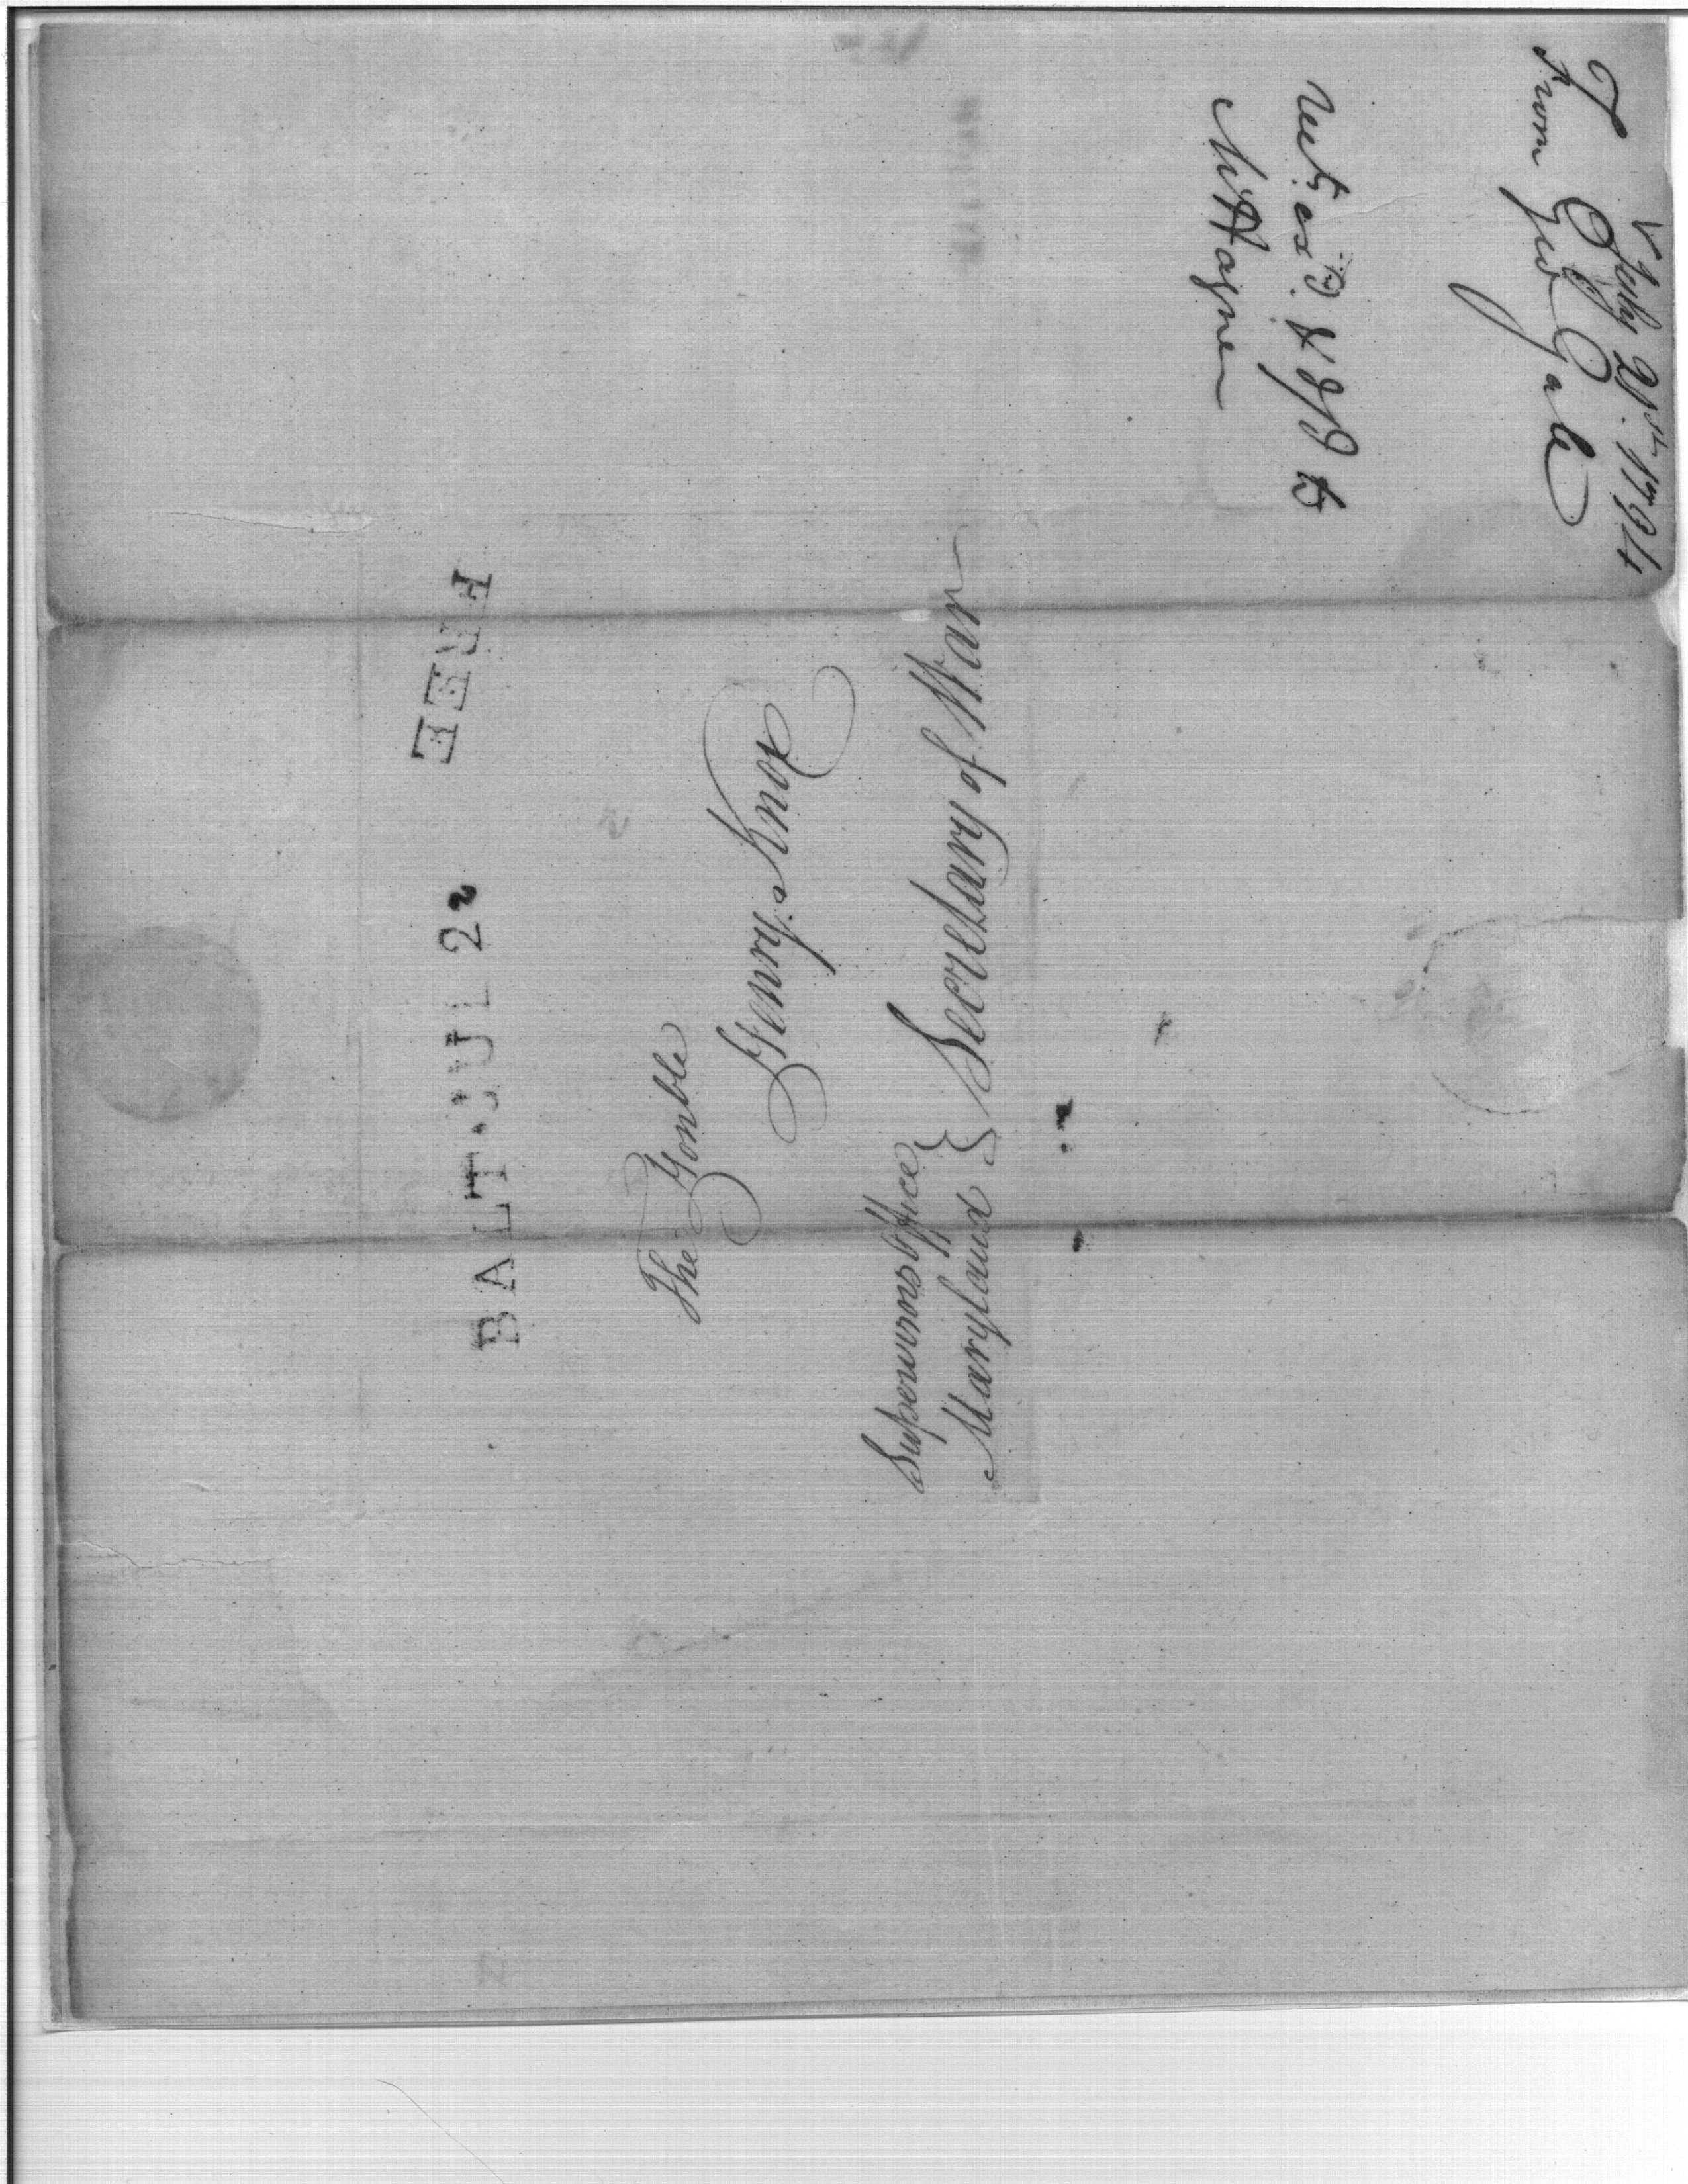 BALT. JUL 22
FREE
The Honble
Henry Knox
Secretary of War
Supervisors Office
Maryland
July 21st. 1794
From Geo Gale
to